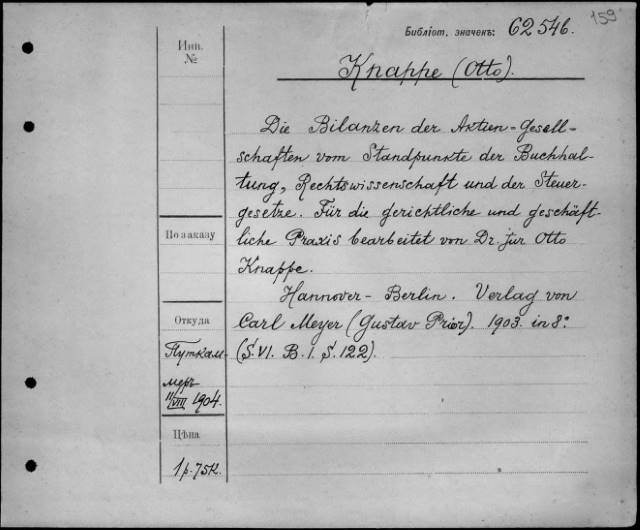 159
Библіот. значекъ: 62546.
Инв.
№
Knappe (Otto).
Die Bilanzen der Aktien-Gesell-
schaften vom Standpunkte der Buchhal-
tung, Rechtswissenschaft und der Steuer-
gesetze. Für die gerichtliche und geschäft-
По заказу
liche Praxis bearbeitet von Dr. jur Otto
Knappe.
Hannover - Berlin. Verlag von
Откуда
Carl Meyer (Gustav Prior). 1903. in 8º
Путкам-
(S. VI. B. I. S. 122).
меръ
11/VIII 1904.
Цѣна
1 р. 75 к.